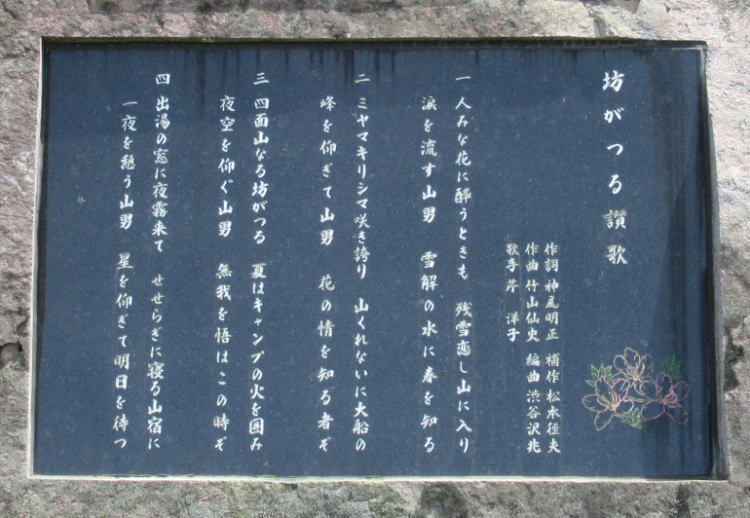 坊がつる讃歌
作詞 神尾明正 補作 松本徰夫
作曲 竹山仙史 編曲 渋谷沢兆
歌手 芹 洋子
一 人みな花に酔うときも 残雪恋し山に入り
涙を流す山男 雪解の水に春を知る
二 ミヤマキリシマ咲き誇り 山くれないに大船の
峰を仰ぎて山男 花の情を知る者ぞ
三 四面山なる坊がつる 夏はキャンプの火を囲み
夜空を仰ぐ山男 無我を悟はこの時ぞ
四 出湯の窓に夜霧来て せせらぎに寝る山宿に
一夜を憩う山男 星を仰ぎて明日を待つ